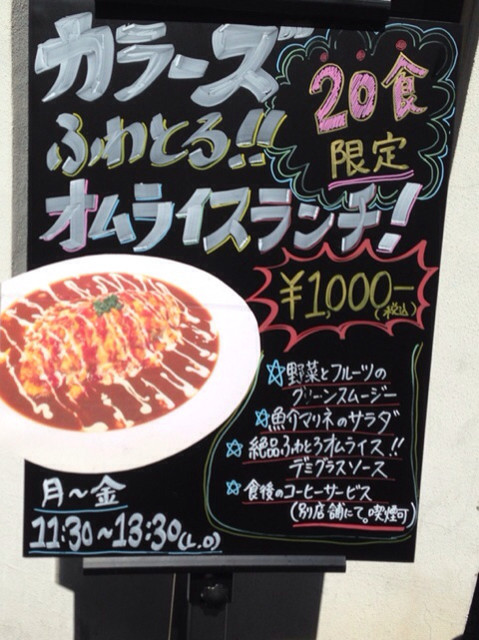 カラーズ
ふわとる!!
オムライスランチ!
20食
限定
¥1,000-
(税込)
☆野菜とフルーツの
グリーンスムージー
☆魚介マリネのサラダ
☆絶品ふわとろオムライス!!
デミグラスソース
☆食後のコーヒーサービス
(別店舗にて。喫煙可)
月~金
11:30~13:30(L.O)